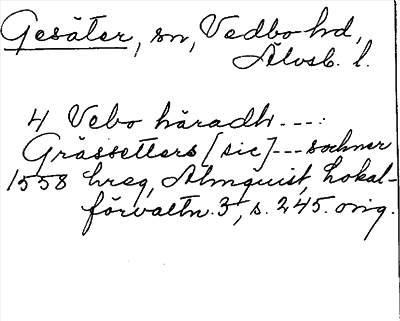 Gesäter, sn, Vedbo hd,
Älvsb. l.
4 Vebo häradh ----:
Grässetters [sic] --- sochner
1558 hreg, Almquist, Lokal-
förvaltn. 3, s. 245. orig.